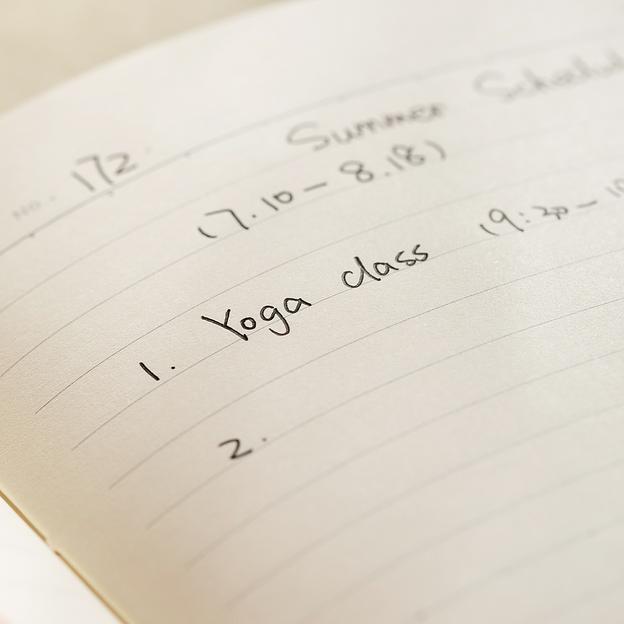 No. 172
Summer
(7.10 – 8.18)
1. Yoga class (9:30 –
2.